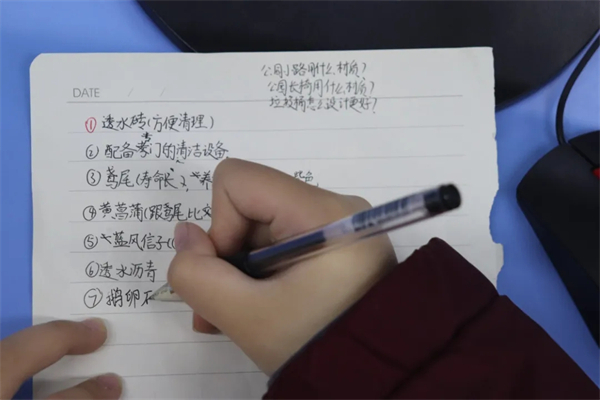 公园小路用什么材质?
公园长椅用什么材质?
垃圾桶怎么设计更好?
DATE / /
① 透水砖(方便清理)
② 配备专门的清洁设备
③ 鸢尾(寿命长
④ 黄菖蒲(跟鸢尾比
⑤ 蓝风信子(
⑥ 透水沥青
⑦ 鹅卵石